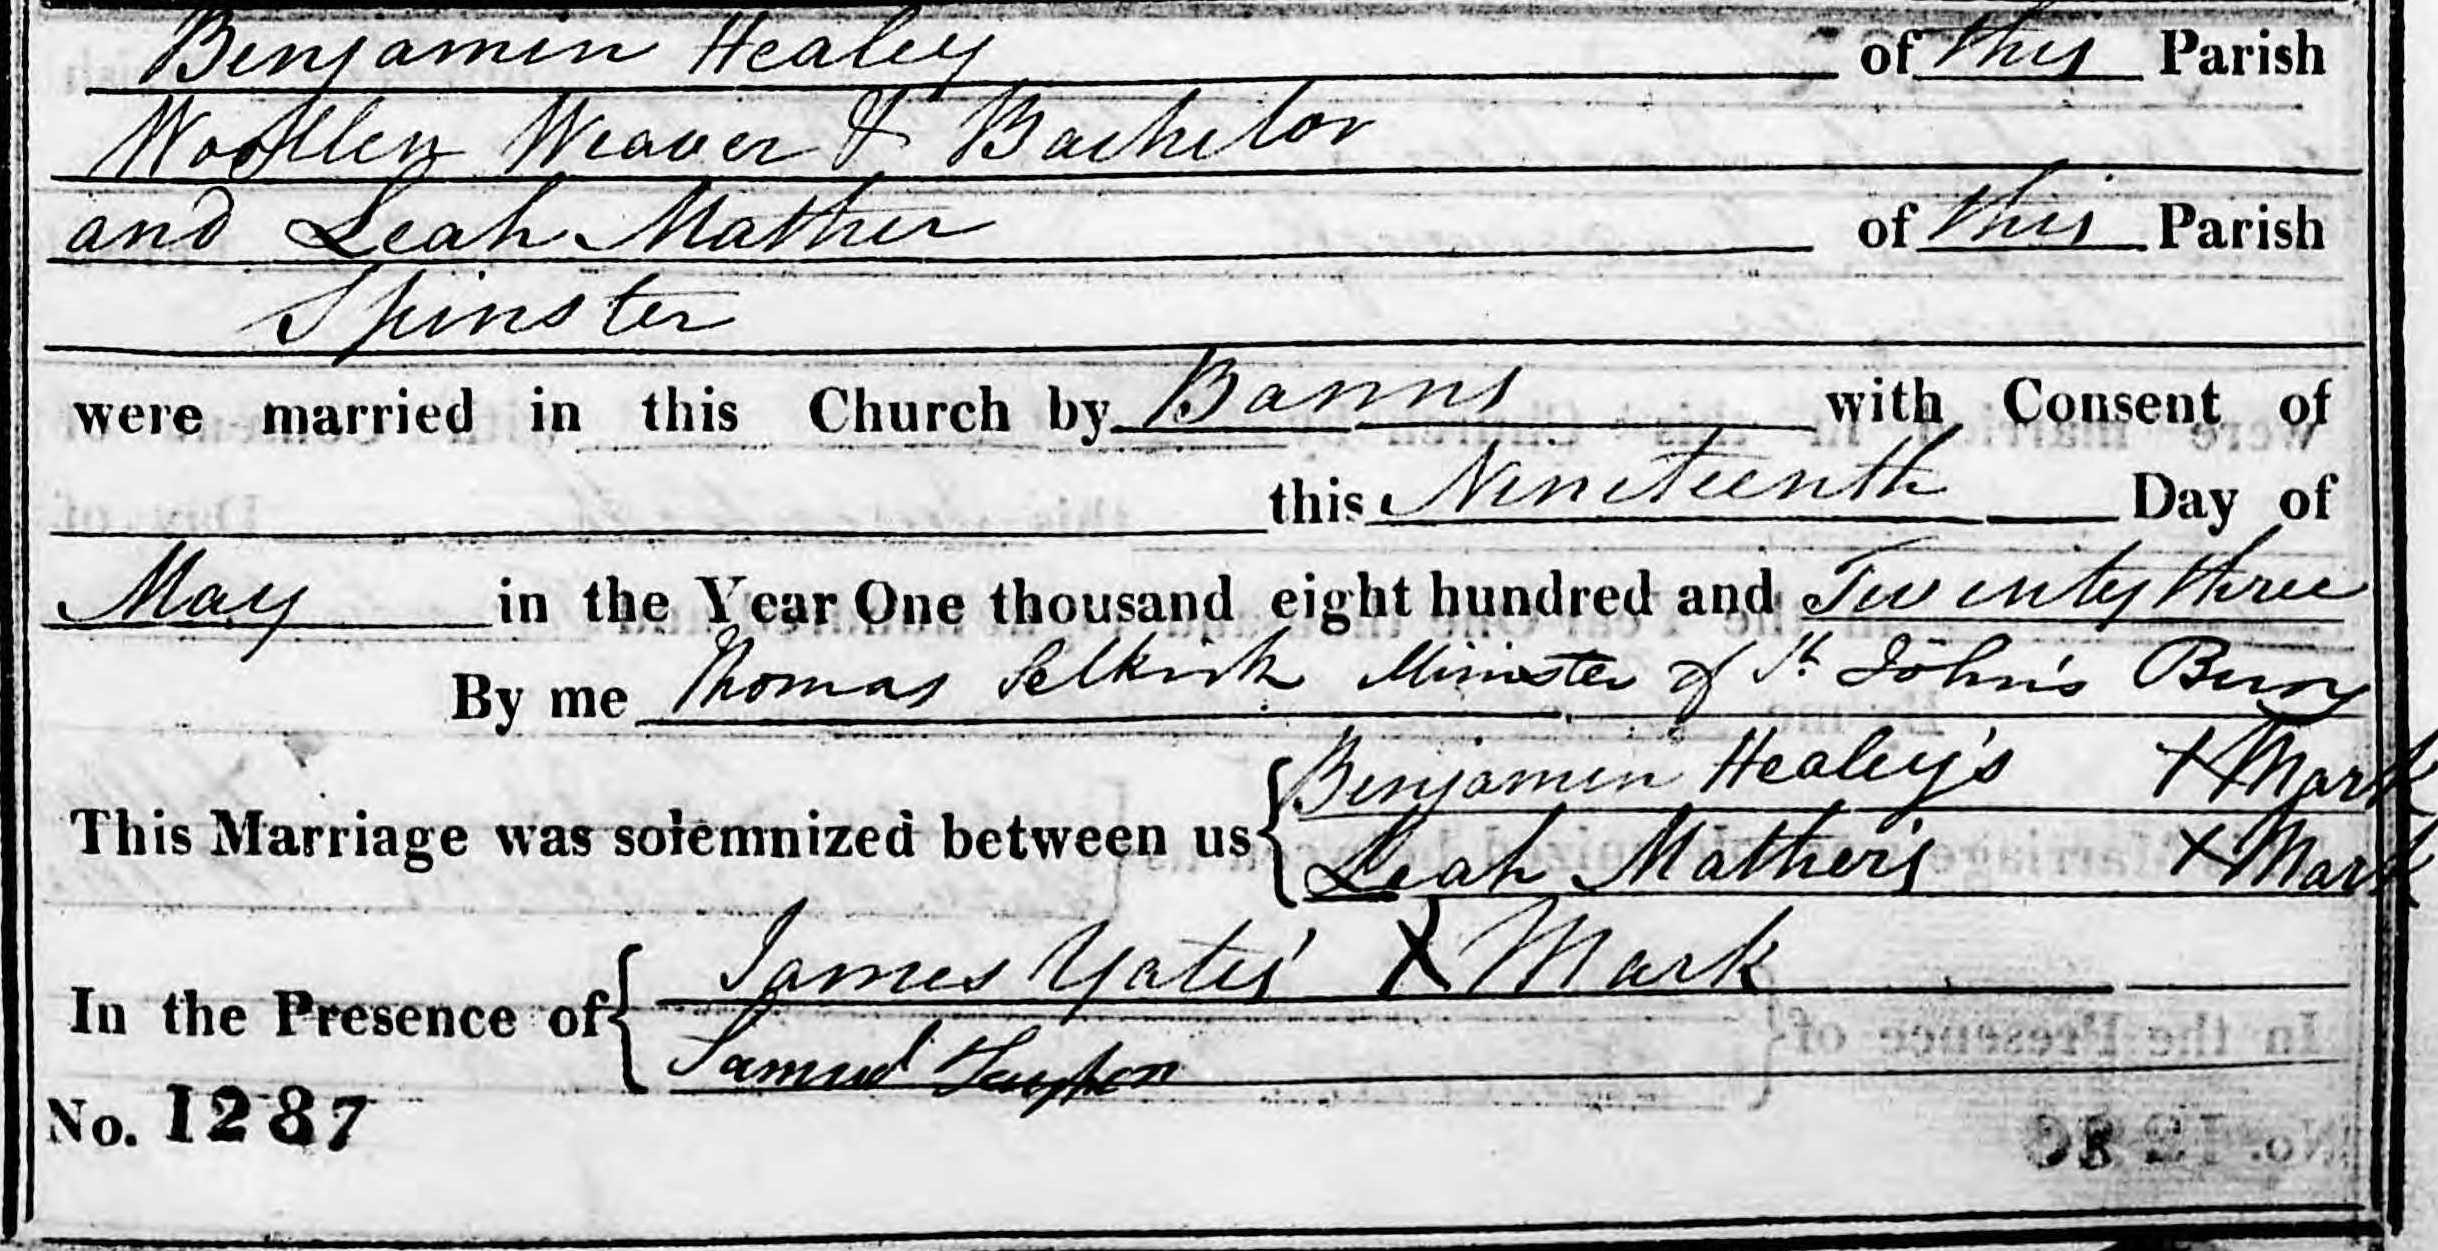 Benjamin Healey of this Parish
Woollen Weaver & Bachelor
and Leah Mather of this Parish
Spinster
were married in this Church by Banns with Consent of
this Nineteenth Day of
May in the Year One thousand eight hundred and Twenty three
By me Thomas Selkirk Minister of St. John's Bury
This Marriage was solemnized between us { Benjamin Healey's X Mark
Leah Mather's X Mark
In the Presence of { James Yates' X Mark
Samuel
No. 1287